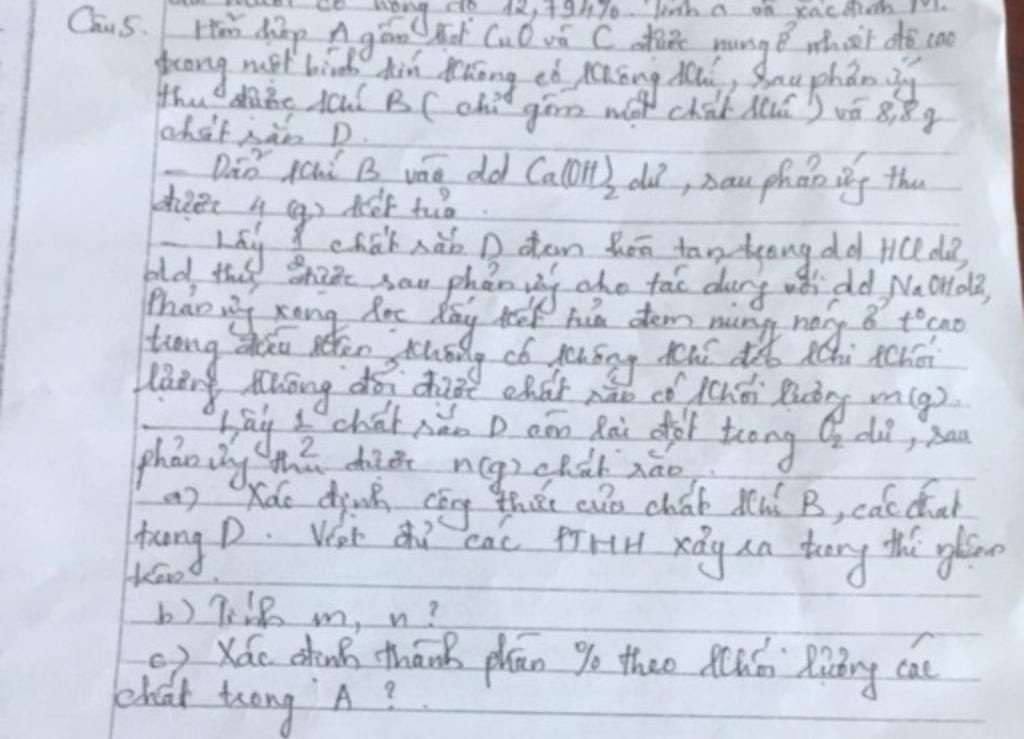 có nồng độ 12,794%. Tính a và xác định M.
Câu 5. Hỗn hợp A gồm bột CuO và C được nung ở nhiệt độ cao
trong một bình kín không có không khí, sau phản ứng
thu được khí B (chỉ gồm một chất khí) và 8,8g
chất rắn D.
- Dẫn khí B vào dd Ca(OH)2 dư, sau phản ứng thu
được 4 (g) kết tủa.
- Lấy 1 chất rắn D đem hòa tan trong dd HCl dư,
dd thu được sau phản ứng cho tác dụng với dd NaOH dư,
Phản ứng xong lọc lấy kết tủa đem nung nóng ở t° cao
trong điều kiện không có không khí đến khi khối
lượng không đổi được chất rắn có khối lượng m(g).
- Lấy 1 chất rắn D còn lại đốt trong O2 dư, sau
phản ứng thu được n(g) chất rắn.
a) Xác định công thức của chất khí B, các chất
trong D. Viết đủ các PTHH xảy ra trong thí nghiệm
trên.
b) Tính m, n?
c) Xác định thành phần % theo khối lượng các
chất trong A?